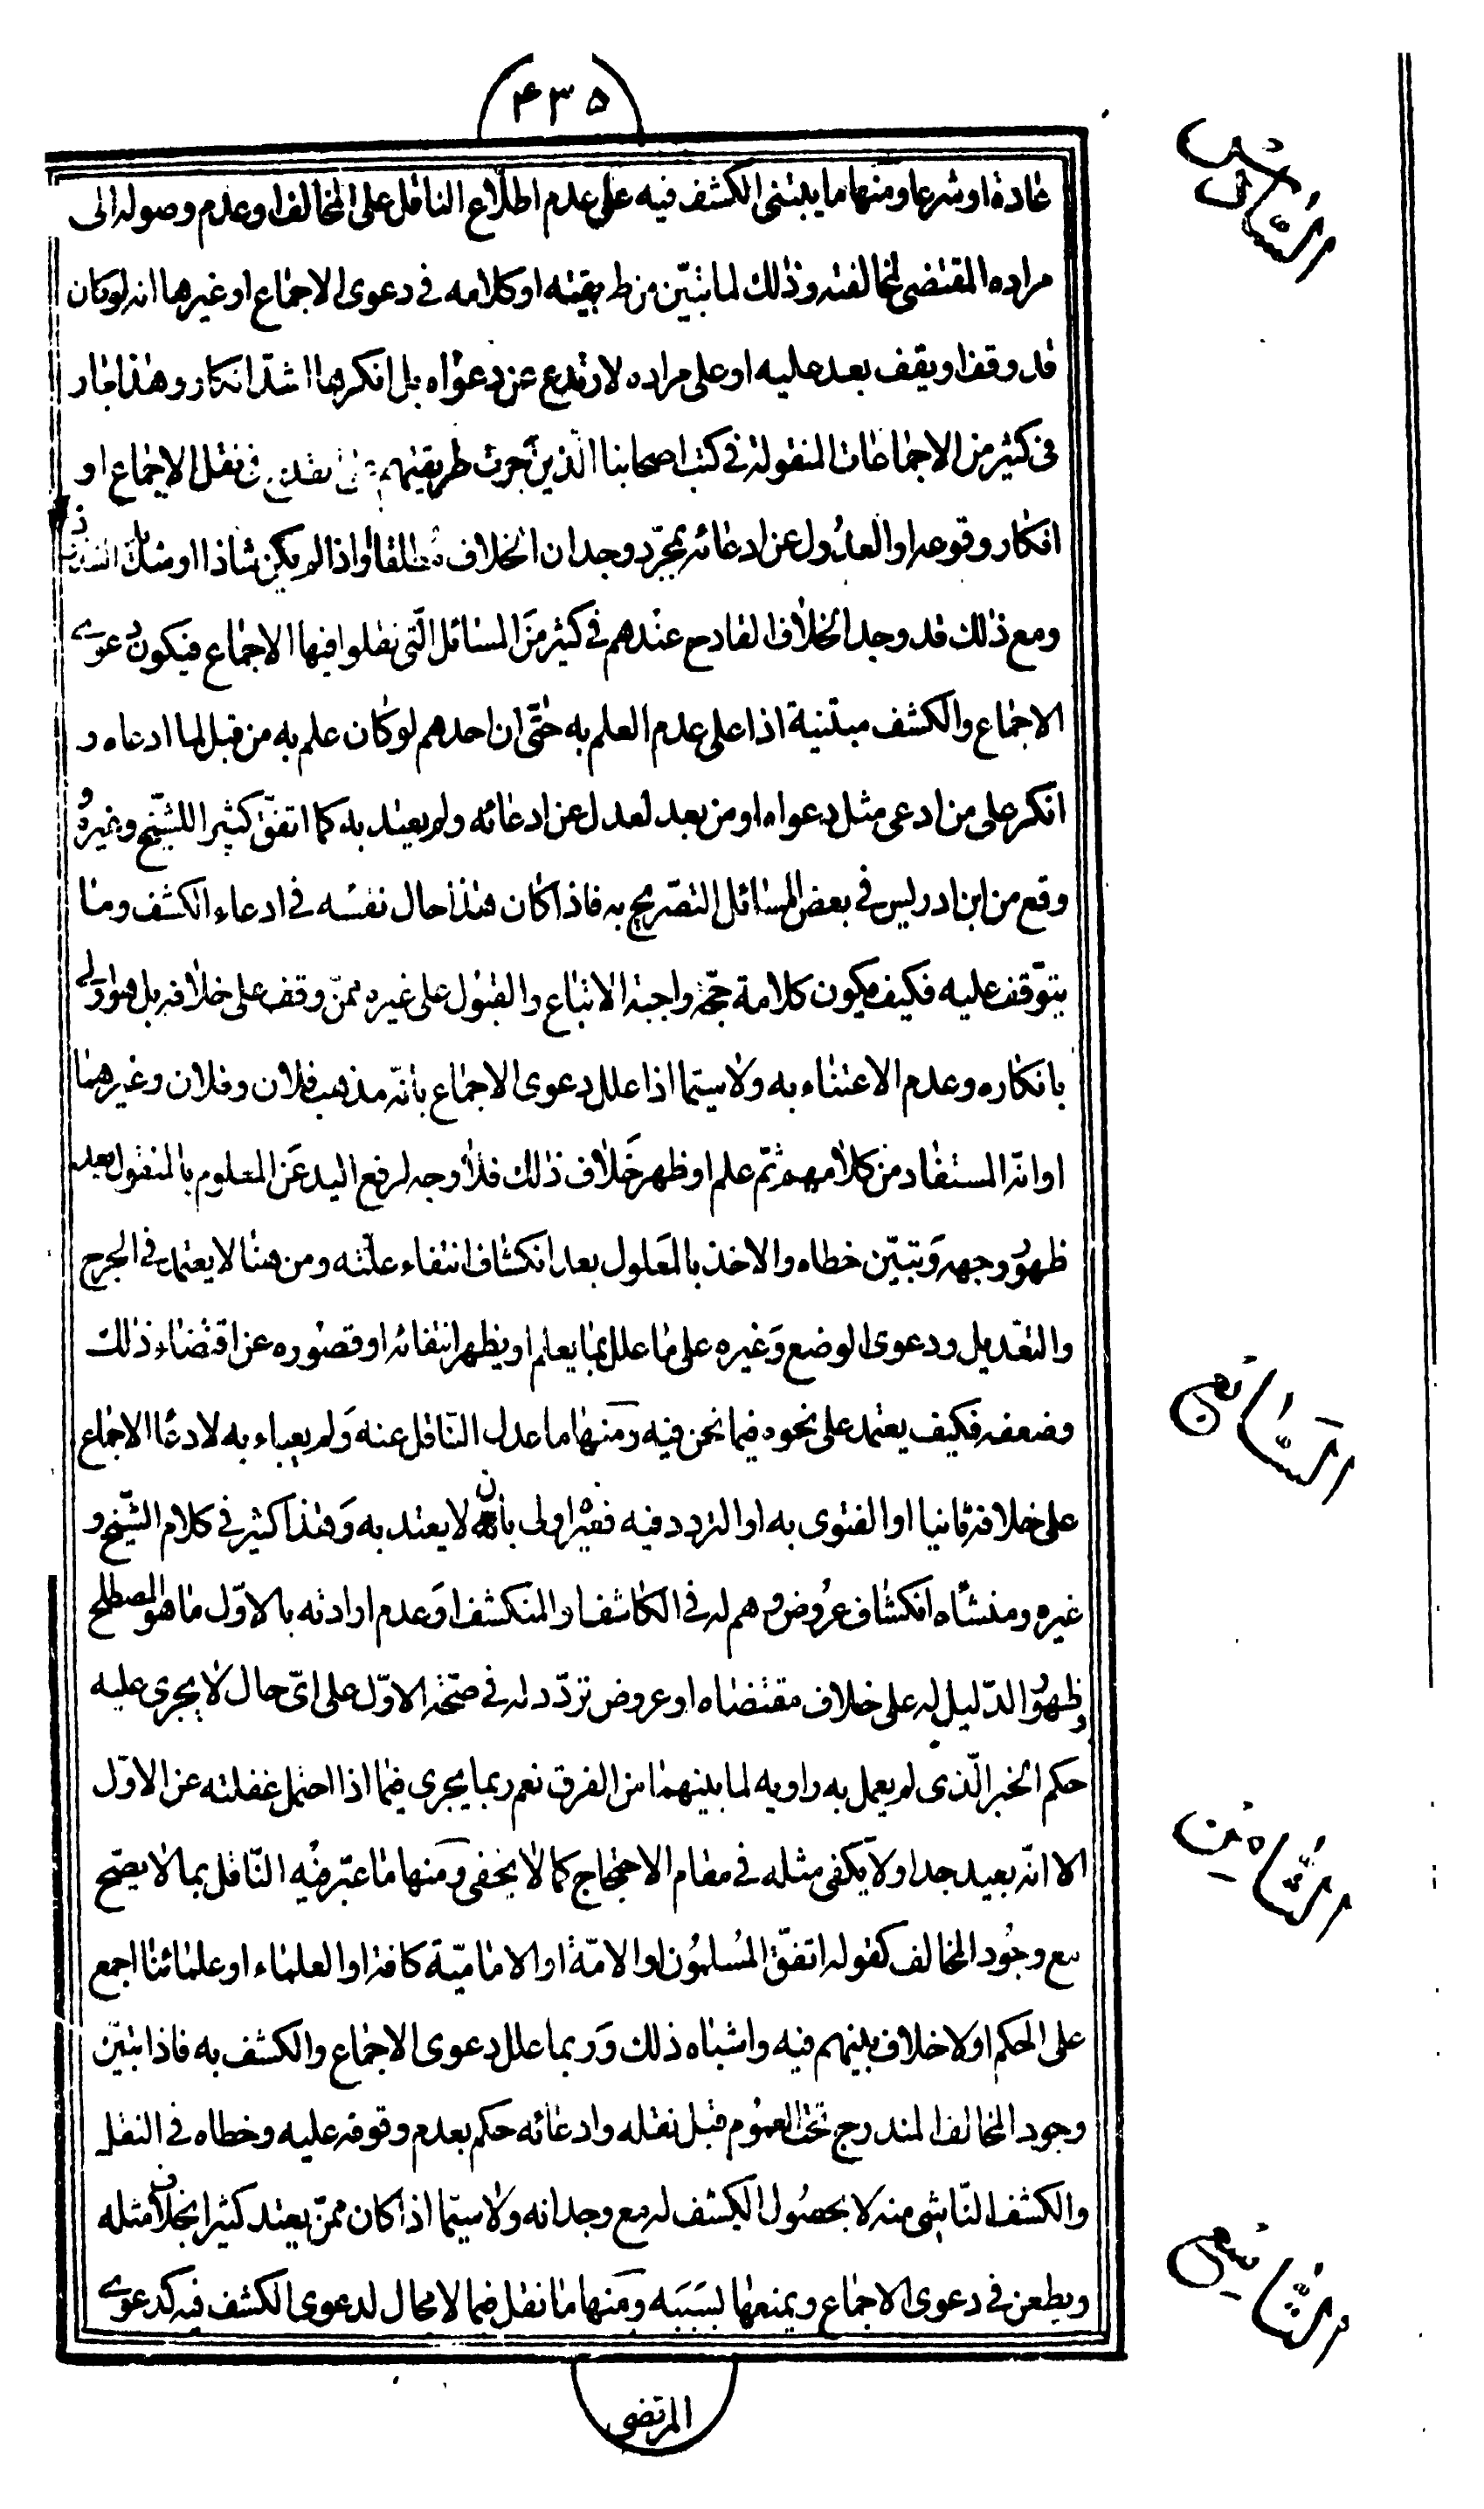 ۴۳۵
عادة او شرعا ومنها ما يبتنى الكشف فيه على عدم اطلاع الناقل على المخالف او عدم وصوله الى
السادس
مراده المقتضى لمخالفته وذلك لما تبيّن من طريقته او كلامه فى دعوى الاجماع او غيرها انه لو كان
قد وقف او يقف بعد عليه او على مراده لارتدع عن دعواه بل انكرها اشدّ انكار وهذا جار
فى كثير من الاجماعات المنقولة فى كتب اصحابنا الّذين جرت طريقتهم فى نقل الاجماع او
انكار وقوعه او العدُول عن ادعائه بمجرّد وجدان الخلاف مطلقا او اذا لم يكن شاذا او
ومع ذلك قد وجد الخلاف القادح عندهم فى كثير منَ المسائل الّتى نقلوا فيها الاجماع فيكون دعوى
الاجماع والكشف مبتنية اذا على عدم العلم به حتّى ان احدهم لو كان علم به من قبل لما ادعاه و
انكر على من ادعى مثل دعواه او من بعد لعدل عن ادعائه ولم يعتد به كما اتفق كثيرا للشيّخ وغيره و
وقع من ابن ادريس فى بعض المسائل التصّريح به فاذا كان هذا حال نفسه فى ادعاء الكشف وما
يتوّقف عليه فكيف يكون كلامه حجّة واجبة الاتباع والقبول على غيره ممّن وقف على خلافه بل هو اولى
بانكاره وعدم الاعتناء به ولا سيّما اذا علل دعوى الاجماع بانّه مذهب فلان وفلان وغيرهما
او انّه المستفاد من كلامهم ثمّ علم او ظهر خلاف ذلك فلا وجه لرفع اليد عَن المعلوم بالمنقول بعد
ظهوُر وجهه وَتبيّن خطاه والاخذ بالمَعلول بعد انكشاف انتفاء علّته ومن هنا لا يعتمد فى الجرح
والتعديل ودعوى الوضع وَغيره على ما علل بما يعلم او يظهر انتفائه او قصوره عن اقتضاء ذلك
وضعفه فكيف يعتمد على نحوه فيما نحن فيه ومنها ما عدل النّاقل عنه وَلم يعباء به لادعا الاجماع
السابع
على خلافه ثانيا او الفتوى به او التردد فيه فغيره اولى بان لا يعتد به وَهذا كثير فى كلام الشّيخ و
غيره ومنشاه انكشاف عرُوض وهم له فى الكاشف او المنكشف او عدم ارادته بالاوّل ما هو المصطلح
وظهوُر الدّليل له على خلاف مقتضاه او عروض تردّد له فى صحّة الاوّل على اىّ حال لا يجرى عليه
حكم الخبر الّذى لم يعمل به راويه لما بينهما من الفرق نعم ربما يجرى فيما اذا احتمل غفلته عن الاوّل
الا انّه بعيد جدا ولا يكفى مثله فى مقام الاحتجاج كما لا يخفى ومنها ما عبّر فيه النّاقل بما لا يصّح
الثّامن
مع وجُود المخالف كقوله اتفق المُسلموُن او الامّة او الاماميّة كافة او العلماء او علمائنا اجمع
على الحكم او لا خلاف بينهم فيه واشباه ذلك وَربما علل دعوى الاجماع والكشف به فاذا تبيّن
وجود المخالف المندرج تحت العموُم قبل نقله وادعائه حكم بعدم وقوفه عليه وخطاه فى النقل
والكشف النّاشى منه لا بحصُول الكشف له مع وجدانه ولا سيّما اذا كان ممّن يعتد كثيرا بخلاف مثله
ويطعن فى دعوى الاجماع ويمنعها بسَبَبه ومنها ما نقل فيما لا مجال لدعوى الكشف فيه كدعوى
التّاسع
المرتضى